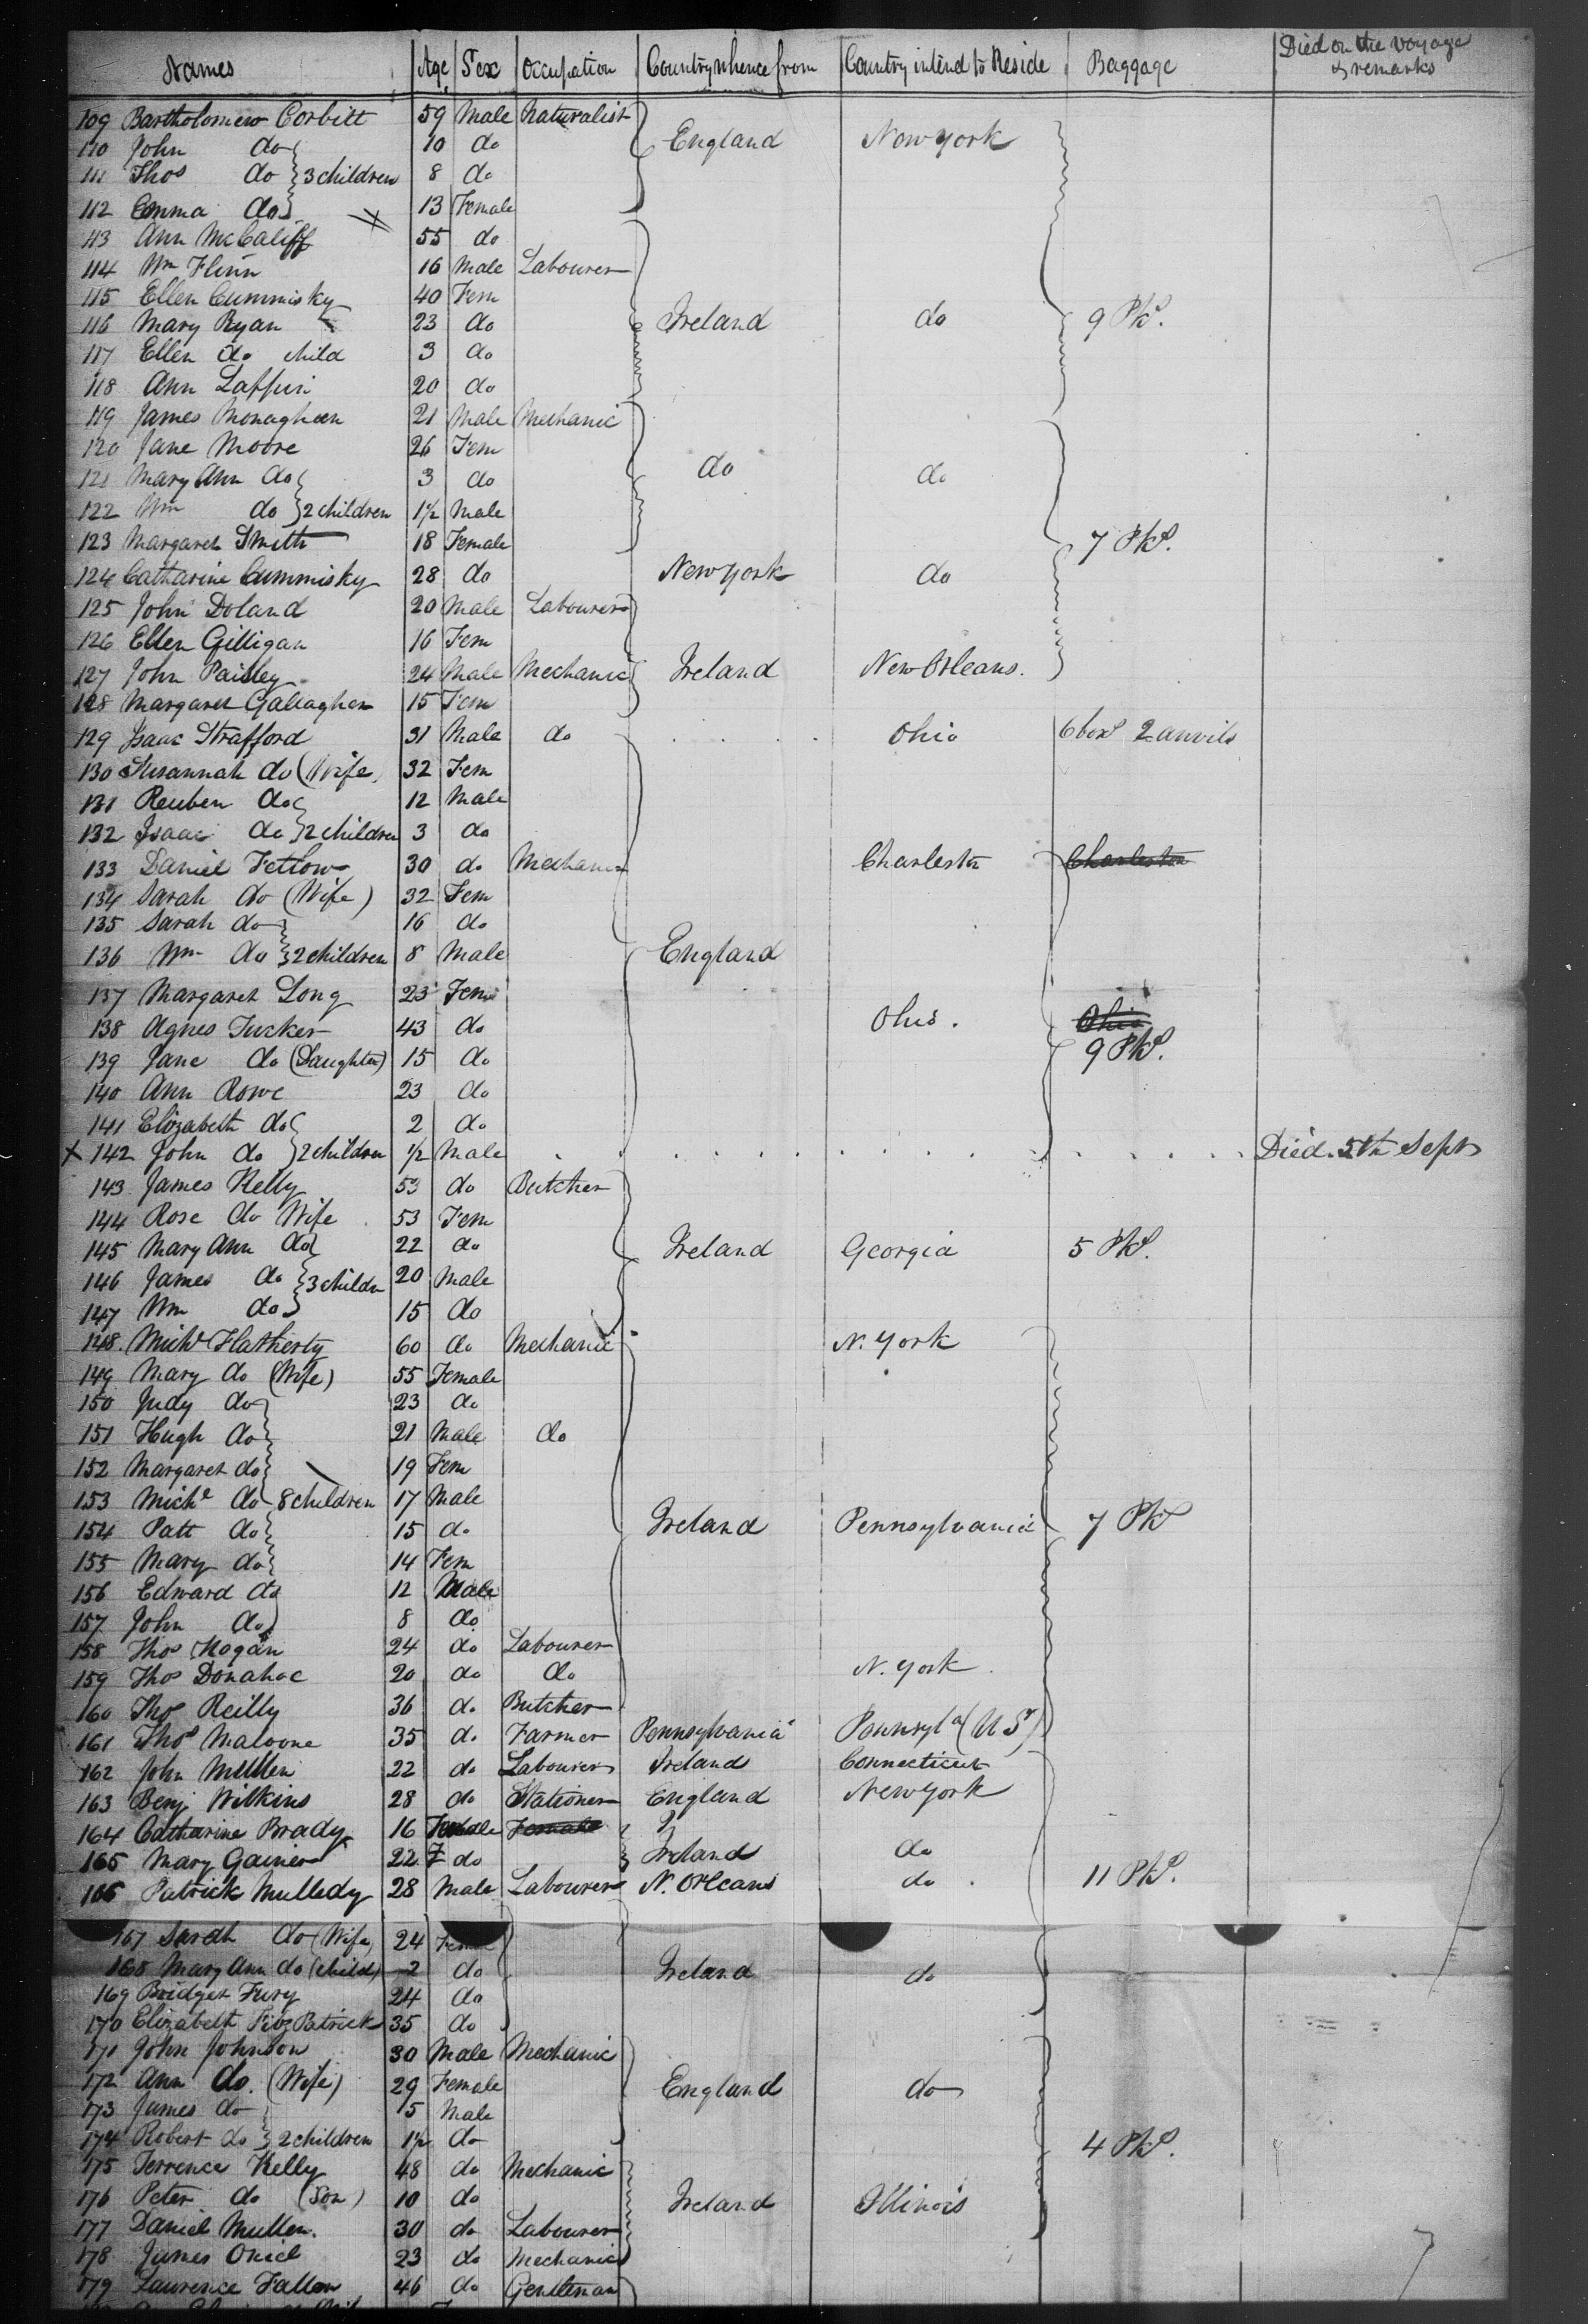 Names Age Sex Occupation Country whence from Country intend to Reside Baggage Died on the voyage & remarks
109 Bartholomew Corbitt 59 Male Naturalist England New York
110 John do 10 do
111 Thos do 3 children 8 do
112 Emma do 13 Female
113 Ann McCaliff 55 do
114 Wm Flinn 16 Male Labourer
115 Ellen Cummisky 40 Fem
116 Mary Ryan 23 do Ireland do 9 Pks.
117 Ellen do child 3 do
118 Ann 20 do
119 James Monaghan 21 Male Mechanic
120 Jane Moore 26 Fem do do
121 Mary Ann do 3 do
122 Wm do 2 children 1½ Male
123 Margaret Smith 18 Female 7 Pks.
124 Catharine Cummisky 28 do New York do
125 John Doland 20 Male Labourer
126 Ellen Gilligan 16 Fem
127 John Paisley 24 Male Mechanic Ireland New Orleans.
128 Margaret Gallagher 15 Fem
129 Isaac Strafford 31 Male do Ohio 6 boxs 2 anvils
130 Susannah do (Wife) 32 Fem
131 Reuben do 12 Male
132 Isaac do 2 children 3 do
133 Daniel Fetlow 30 do Mechanic Charleston Charleston
134 Sarah do (Wife) 32 Fem
135 Sarah do 16 do
136 Wm do 2 children 8 Male England
137 Margaret Long 23 Fem
138 Agnes Tucker 43 do Ohio. Ohio
139 Jane do (Daughter) 15 do 9 Pks.
140 Ann Rowe 23 do
141 Elizabeth do 2 do
x 142 John do 2 children ½ Male Died. 5th Sept
143 James Kelly 53 do Butcher
144 Rose do Wife 53 Fem
145 Mary Ann do 22 do Ireland Georgia 5 Pks.
146 James do 3 childn 20 Male
147 Wm do 15 do
148. Michl Flatherty 60 do Mechanic N. York
149 Mary do (Wife) 55 Female
150 Judy do 23 do
151 Hugh do 21 Male do
152 Margaret do 19 Fem
153 Michl do 8 children 17 Male
154 Patt do 15 do Ireland Pennsylvania 7 Pks
155 Mary do 14 Fem
156 Edward do 12 Male
157 John do 8 do
158 Thos Hogan 24 do Labourer
159 Thos Donahoe 20 do do N. York
160 Thos Reilly 36 do Butcher
161 Thos Maloone 35 do Farmer Pennsylvania Pennsyla (U S)
162 John Mullen 22 do Labourer Ireland Connecticut
163 Benj Wilkins 28 do Stationer England New York
164 Catharine Brady 16 Female Female
165 Mary Gainer 22 F do Ireland do
166 Patrick Mulledy 28 Male Labourer N. Orleans do 11 Pks.
167 Sarah do (Wife) 24 Female
168 Mary Ann do (child) 2 do Ireland do
169 Bridget Fury 24 do
170 Elizabeth FitzPatrick 35 do
171 John Johnson 30 Male Mechanic
172 Ann do. (Wife) 29 Female England do
173 James do 5 Male
174 Robert do 2 children 1½ do 4 Pks.
175 Terrence Kelly 48 do Mechanic
176 Peter do (Son) 10 do Ireland Illinois
177 Daniel Mullen. 30 do Labourer
178 James Oniel 23 do Mechanic
179 Laurence Fallon 46 do Gentleman